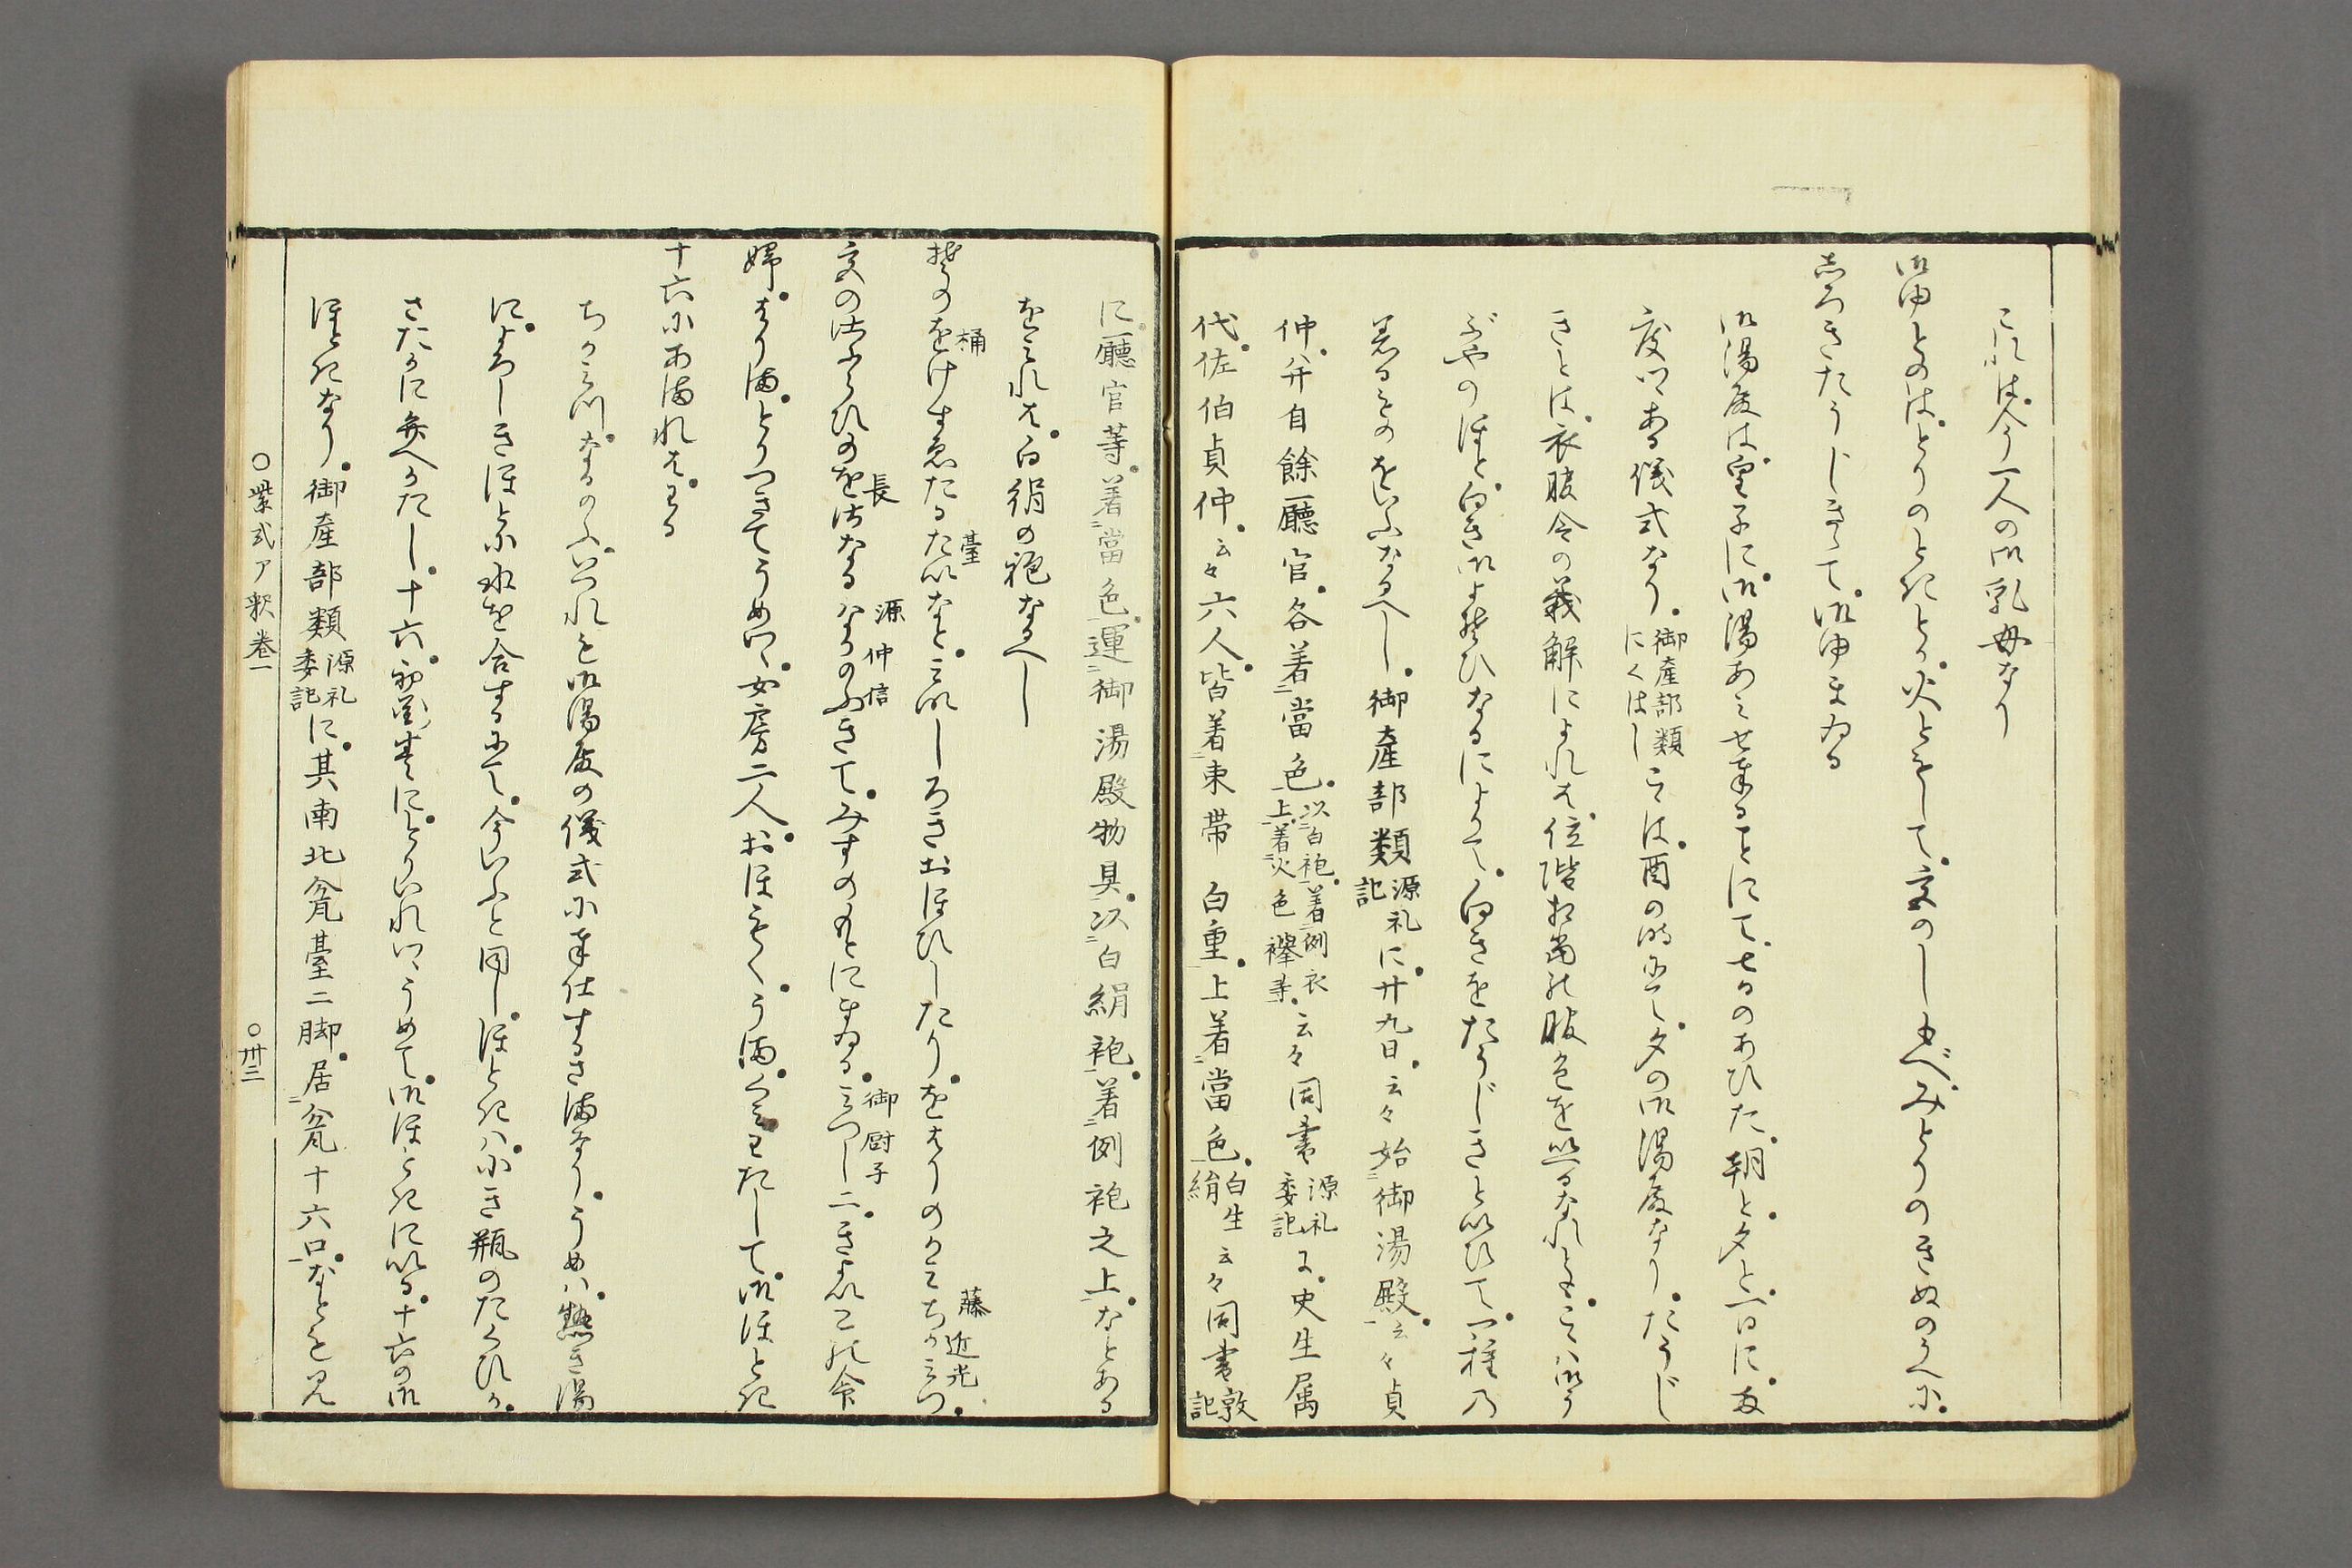 これは今一人の御乳母なり
御ゆとのはとりのときとか火ともして宮のしもべみとりのきぬのうへに
しろきたうじききて御ゆまゐる
御湯殿は皇子に御湯あみせ奉ることにて七日のあひた朝と夕と一日に両
度つゝある儀式なり御産部類にくはしこゝは酉の時にて夕の御湯殿なりたうじ
きとは衣服令の義解によれは位階相当の服色を
ぶやのほと白き御よそひなるによりて白きをたうじきといひて一種の
着るものをいふなるへし御産部類源礼記に廿九日云々始御湯殿云々貞
仲弁自餘廳官各着當色以白袍着例衣上着火色襷等云々同書源礼委記に史生属
代佐伯貞仲云々六人皆着束帯白重上着當色白生絹云々同書敦記
に廳官等着當色運御湯殿物具以白絹袍着例袍之上なとある
をみれは白絹の袍なるへし
桶 臺 藤 近光
そのをけすゑたるたいなとみなしろきおほひしたりをはりのかみちかみつ
長 源 仲信 御厨子
宮の侍ふらひのをさなるなかのふかきてみすのもとにまゐるみつし二きよいこの命
婦はりまとりつきてうめつゝ女房二人おほもくうまくみわたして御ほとき
十六にあまれはわる
ちかみつなかのふいつれも御湯殿の儀式に奉仕するさまなりうめは熱き湯
によろしきほとに水を合するにて今いふと同しほときは小き瓶のたくひか
さたかに弁へかたし十六にとりいれつゝうめて御ほときにいる十六の御
ほときなり御産部類源礼委記に其南北瓫臺二脚居瓫十六口なとも見
○紫式ア釈巻一 ○卅三